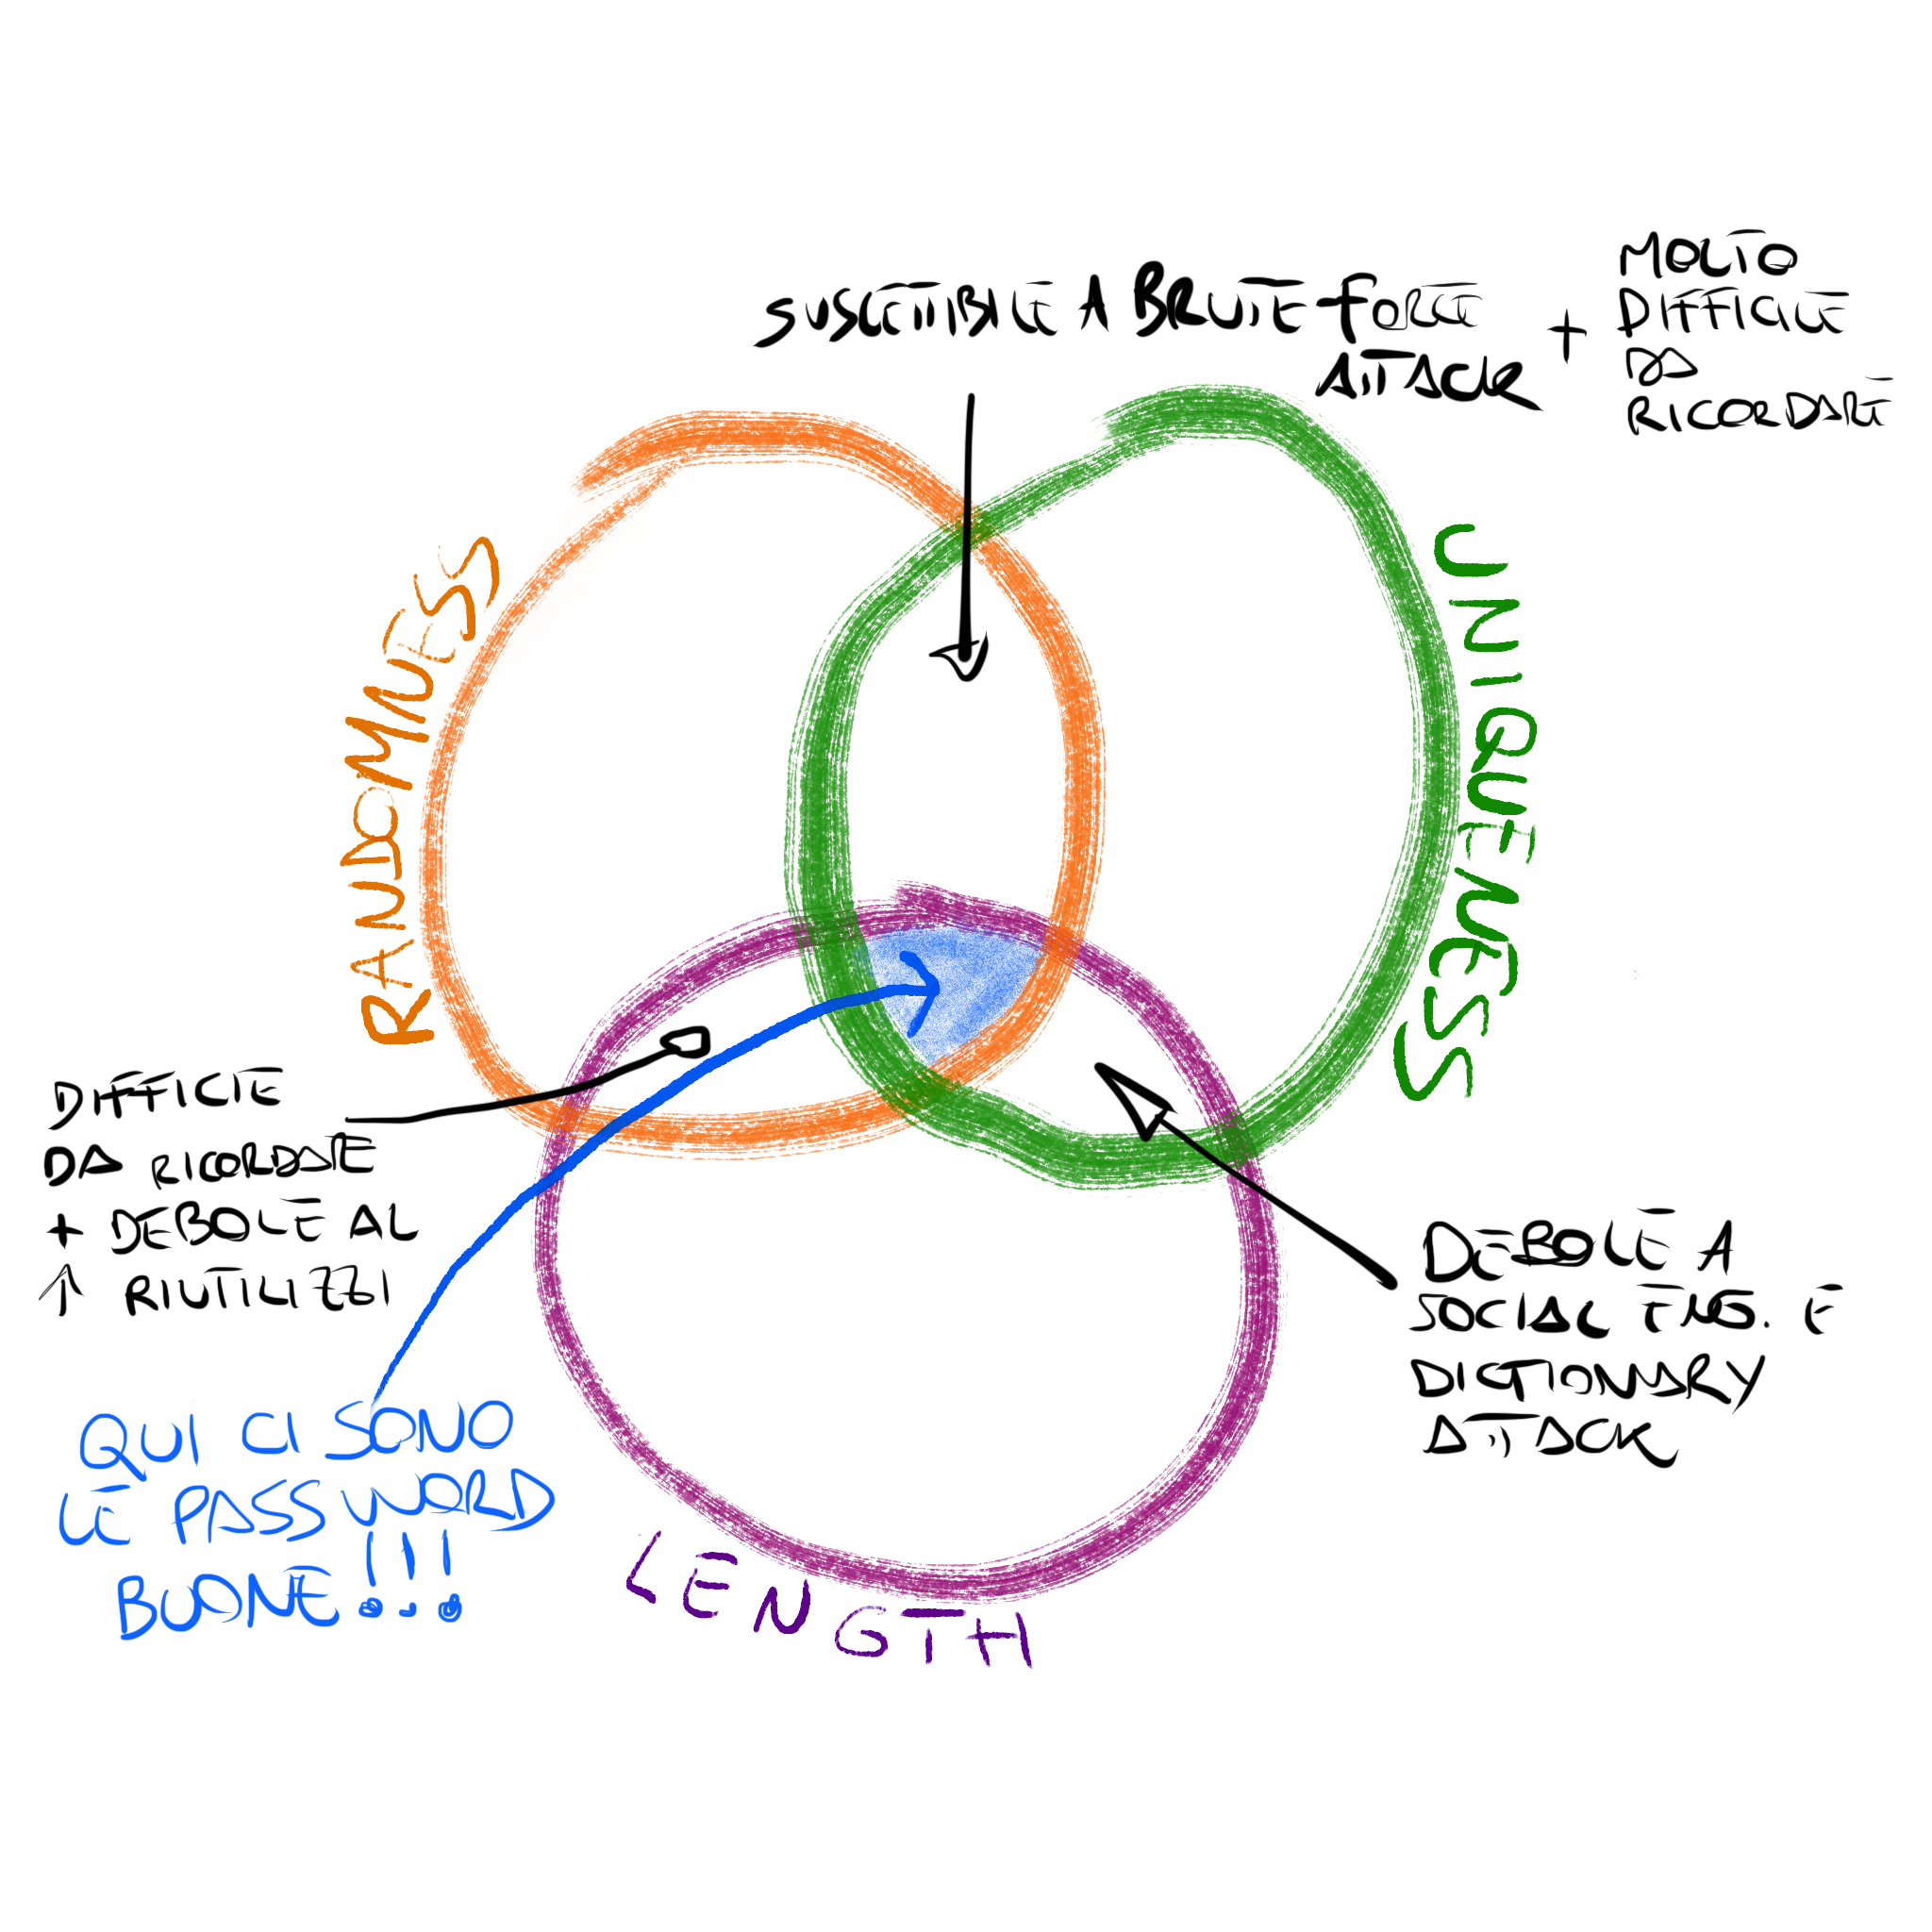 SUSCETTIBILE A BRUTE FORCE
ATTACK
+
MOLTO
DIFFICILE
DA
RICORDARE
RANDOMNESS
UNIQUENESS
DIFFICIE
DA RICORDARE
+ DEBOLE AL
↑ RIUTILIZZI
DEBOLE A
SOCIAL ENG. E
DICTIONARY
ATTACK
QUI CI SONO
LE PASSWORD
BUONE!!!
LENGTH